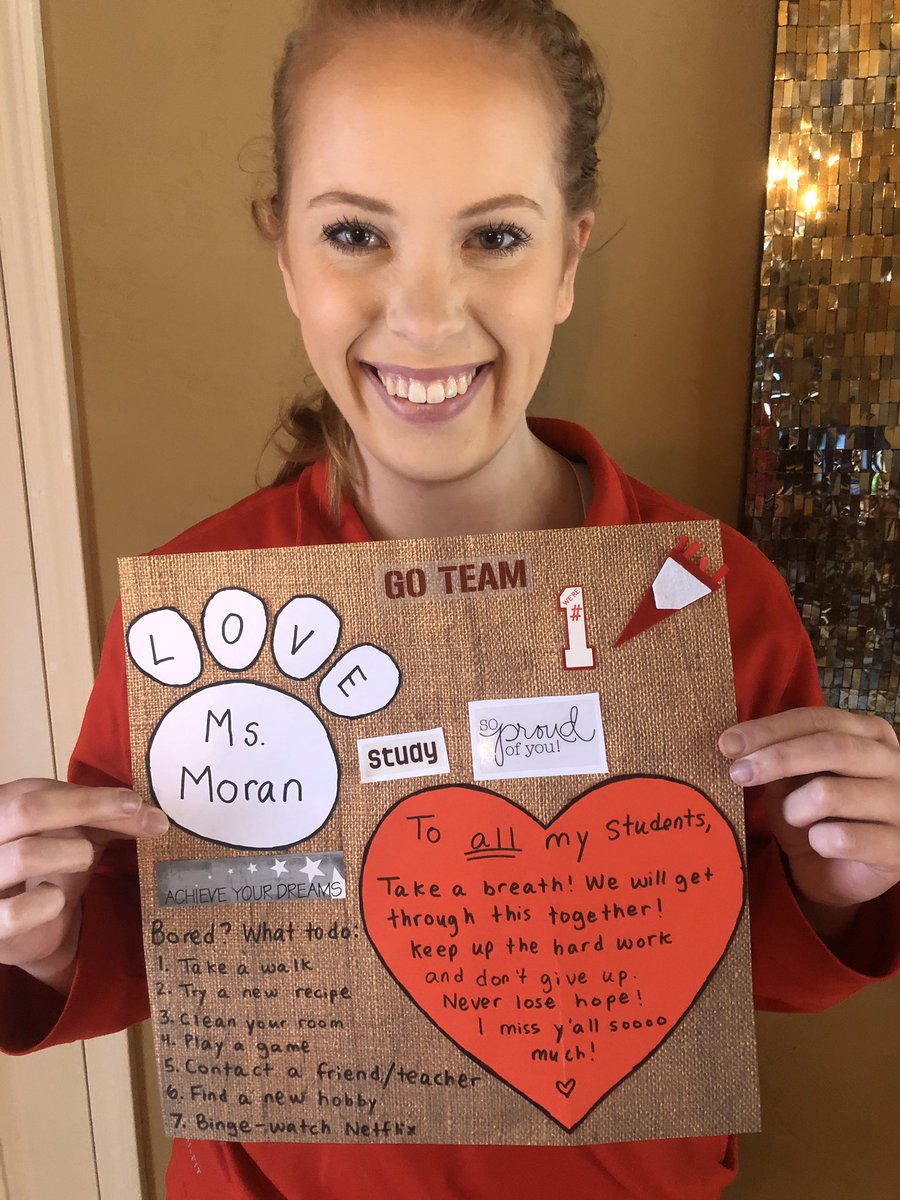 GO TEAM
WE'RE
#
1
LOVE
Ms.
Moran
study
so proud
of you!
ACHIEVE YOUR DREAMS
Bored? What to do:
1. Take a walk
2. Try a new recipe
3. Clean your room
4. Play a game
5. Contact a friend/teacher
6. Find a new hobby
7. Binge-watch Netflix
To all my students,
Take a breath! We will get
through this together!
Keep up the hard work
and don't give up.
Never lose hope!
I miss y'all soooo
much!